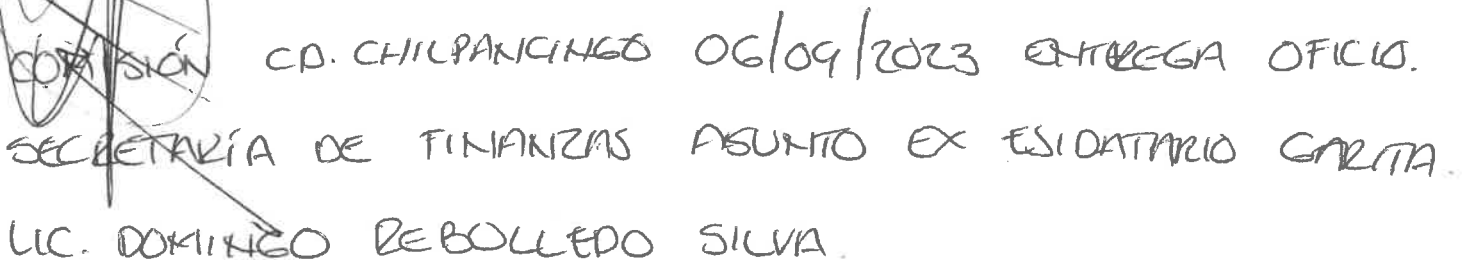 COMISIÓN CD. CHILPANCINGO 06/09/2023 ENTREGA OFICIO.
SECRETARÍA DE FINANZAS ASUNTO EX ESIDATARIO GARITA.
LIC. DOMINGO REBOLLEDO SILVA.